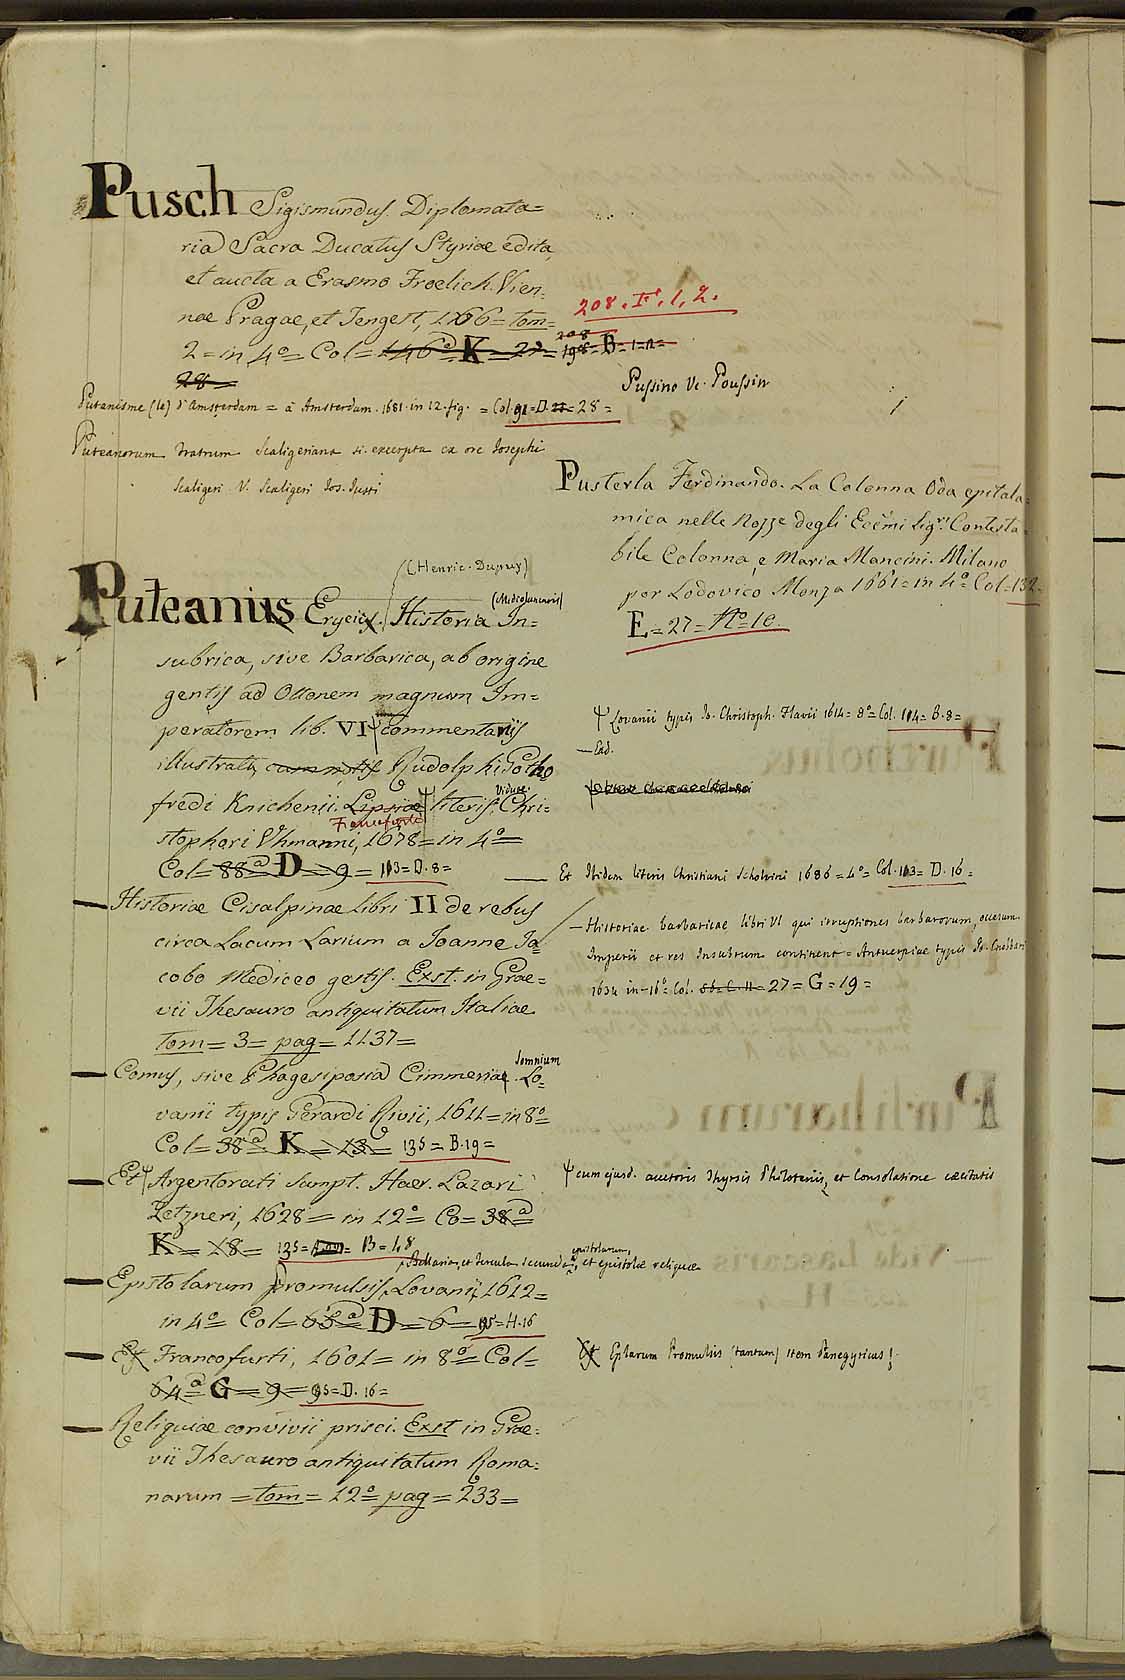 Pusch Sigismundus. Diplomata=
ria Sacra Ducatus Styriae edita,
et aucta a Erasmo Froelich. Vien=
nae Pragae, et Tergest, 1756= tom=
2= in 4º= Col= 146ª K= 27= 198= B= 1=2=
208
28=
208. Fº. 1, 2.
Pussino V. Poussin
Putanisme (le) d'Amsterdam = à Amsterdam. 1681. in 12. fig. = Col. 91= D. 28=
Puteanorum Fratrum Scaligeriana si. excerpta ex ore Josephi
Scaligeri. V. Scaligeri Jos. Justi
Pusterla Ferdinando. La Colonna Oda epitala=
mica nelle Nozze degli Eccmi Sigri Contesta=
bile Colonna, e Maria Mancini. Milano
per Lodovico Monza 1661= in 4º Col=132=
E=27= Nº=10
(Henric. Dupuy)
Puteanus Erycius. Historia In=
(Mediolanensis)
subrica, sive Barbarica, ab origine
gentis ad Ottonem magnum Im=
peratorem lib. VI commentariis
illustrata cum notis Rudolphi Gotho
fredi Knichenii. Lipsiae literis Chri=
Viduae
Francofurti
stophori Uhmanni, 1678= in 4º=
Col= 88ª D= 9= 113= D. 8=
Ψ Lovanii typis Jo. Christoph. Flavii 1614= 8º= Col. 114= B. 8=
— Ead.
— Et Ibidem literis Christiani Scholvini 1686= 4º= Col. 113= D. 16=
Historiae Cisalpinae libri II de rebus
circa Lacum Larium a Joanne Ja
cobo Mediceo gestis. Exst. in Grae=
vii Thesauro antiquitatum Italiae
tom= 3= pag= 1137=
— Historiae barbaricae libri VI qui irruptiones barbarorum, querum
Imperii et res Insubrum continent= Antuerpiae typis Jo. Cnobbari
1634 in 16º Col. 86= C. 11= 27= G= 19=
Comus, sive Phagesiposia Cimmeria. Lo=
Somnium
vanii typis Gerardi Rivii, 1611= in 8º=
Col= 38ª K= 13= 135= B. 19=
Et Ψ Argentorati sumpt. Haer. Lazari
Zetzneri, 1628= in 12º Co= 38ª=
K= 18= 135= B= 1,8
Ψ cum ejusd. auctoris Thyrsis Philotesiis, et Consolatione caecitatis
Bellaria, et fercula secunda, et epistolae reliquae
epistolarum,
Epistolarum promulsis. Lovanii, 1612=
in 4º Col= 68ª D= 6= 95= H. 16
Et Francofurti, 1601= in 8º= Col=
64ª G= 9= 95= D. 16=
Et Eplarum Promulsis (tantum) item Panegyricus
Reliquiae convivii prisci. Exst in Grae=
vii Thesauro antiquitatum Roma=
narum= tom= 12º= pag= 233=